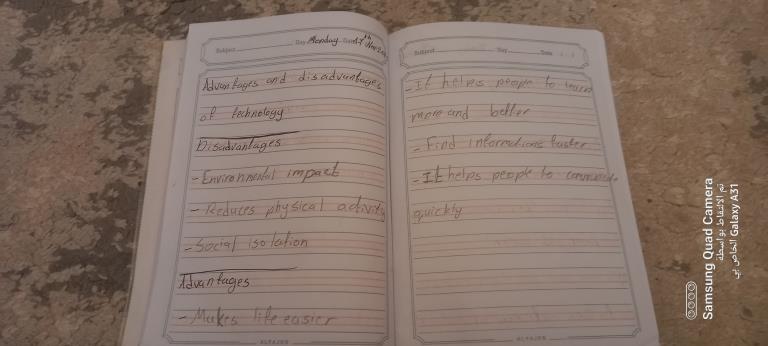 Subject Day Monday Date 17th Nov
Advantages and disadvantages
of technology
Disadvantages
- Environmental impact
- Reduces physical activity
- Social isolation
Advantages
- Makes life easier
ALFAJER
Subject Day Date
- It helps people to learn
more and better
- Find informations faster
- It helps people to
quickly
ALFAJER
Samsung Quad Camera
تم الالتقاط بواسطة
الخاص بي Galaxy A31